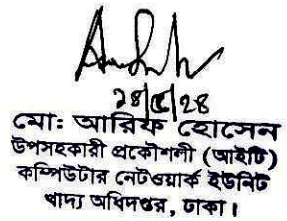 ২৪/৫/২৪
মো: আরিফ হোসেন
উপসহকারী প্রকৌশলী (আইটি)
কম্পিউটার নেটওয়ার্ক ইউনিট
খাদ্য অধিদপ্তর, ঢাকা।